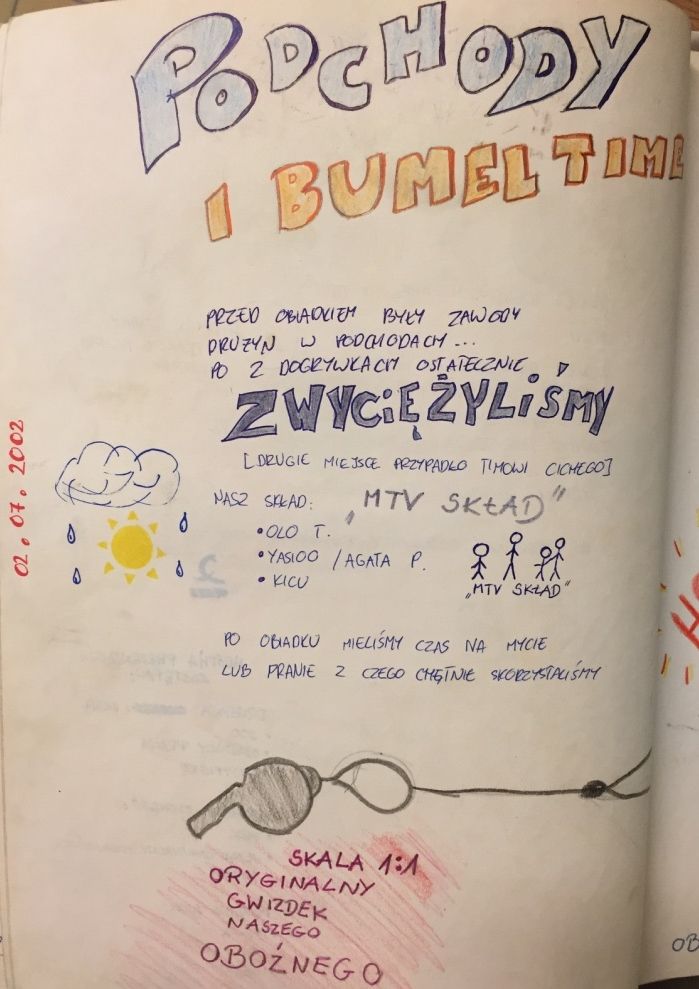 PODCHODY
I BUMEL TIME
PRZED OBIADKIEM BYŁY ZAWODY
DRUŻYN W PODCHODACH...
PO 2 DOGRYWKACH OSTATECZNIE
ZWYCIĘŻYLIŚMY
[DRUGIE MIEJSCE PRZYPADŁO TIMOWI CICHEGO]
02.07.2002
NASZ SKŁAD: „MTV SKŁAD"
• OLO T.
• YASIOO / AGATA P.
• KICU
„MTV SKŁAD"
PO OBIADKU MIELIŚMY CZAS NA MYCIE
LUB PRANIE Z CZEGO CHĘTNIE SKORZYSTALIŚMY
SKALA 1:1
ORYGINALNY
GWIZDEK
NASZEGO
OBOŹNEGO